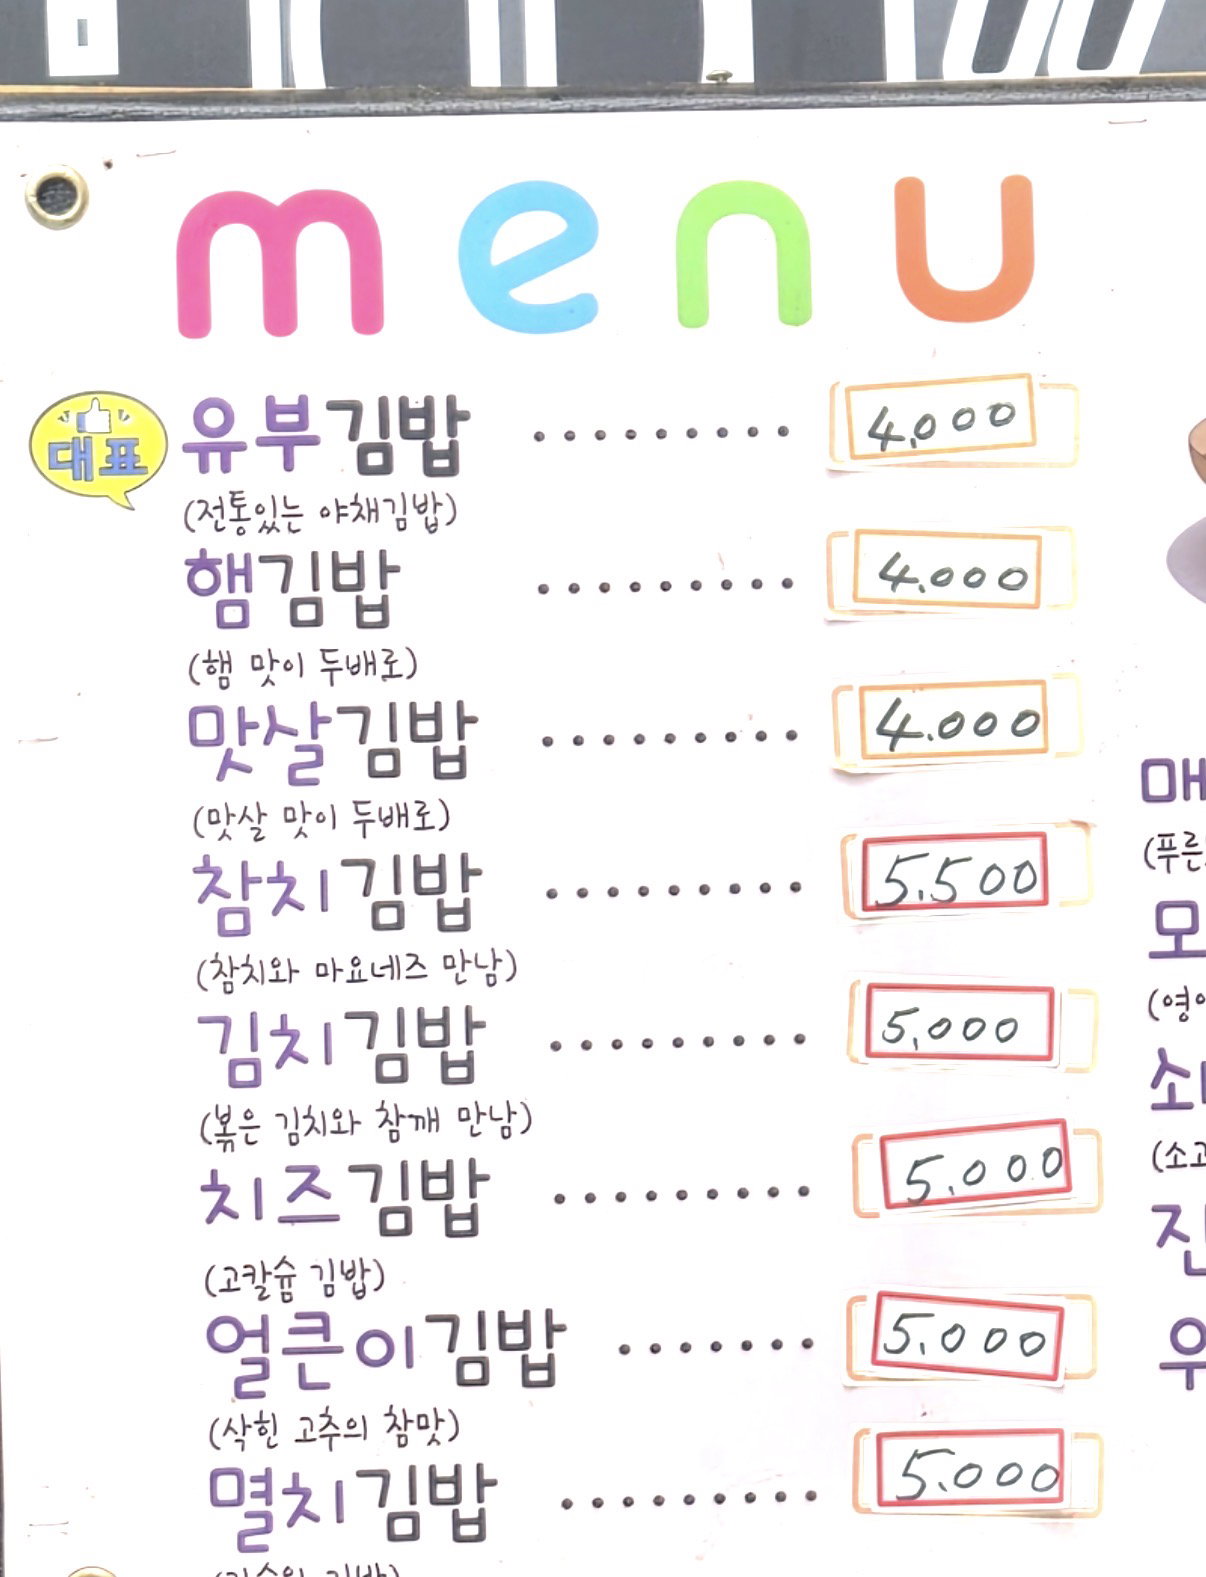 menu
대표 유부김밥 ········· 4,000
(전통있는 야채김밥)
햄김밥 ········· 4.000
(햄 맛이 두배로)
맛살김밥 ········· 4.000
(맛살 맛이 두배로)
참치김밥 ········· 5.500
(참치와 마요네즈 만남)
김치김밥 ········· 5,000
(볶은 김치와 참깨 만남)
치즈김밥 ········· 5.000
(고칼슘 김밥)
얼큰이김밥 ······· 5.000
(삭힌 고추의 참맛)
멸치김밥 ········· 5.000
매
(푸른
모
(영
(소고
진
우